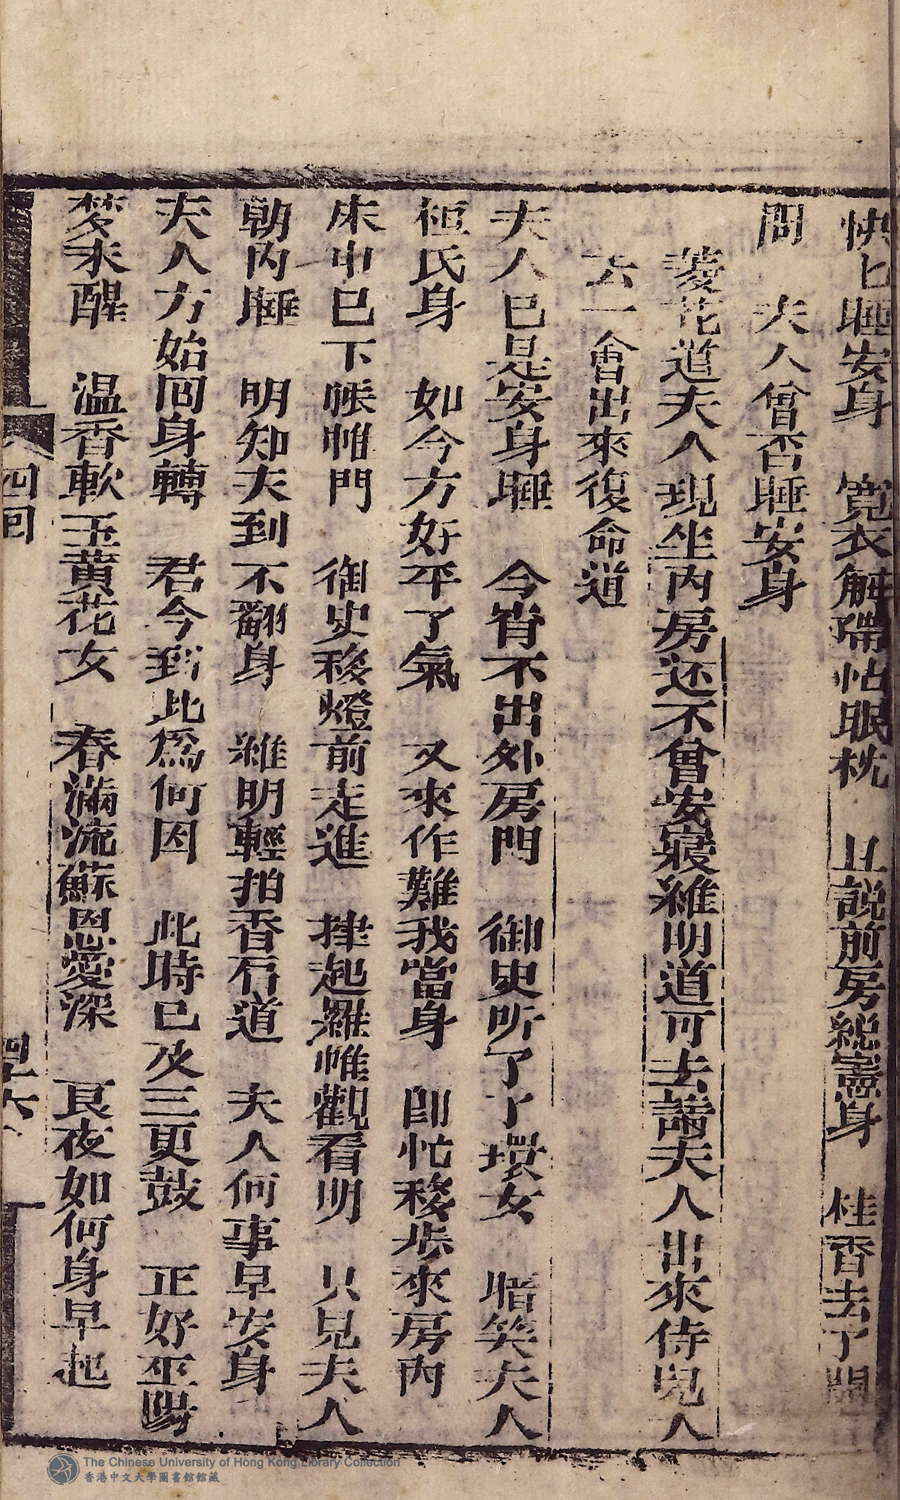 快匕睡安身　寬衣解帶帖眠枕　且說前房總憲身　桂香去了開
問　夫人曾否睡安身
菱花道夫人現坐內房还不曾安寢維明道可去請夫人出來侍兒入
去一會出來復命道
夫人已是安身睡　今宵不出外房門　御史听了了環女　暗笑夫人
桓氏身　如今方好平了氣　又來作難我當身　卽忙移步來房內
床中已下帳帷門　御史移燈前走進　揵起羅帷觀看明　只見夫人
朝內睡　明知夫到不翻身　維明輕拍香肩道　夫人何事早安身
夫人方始回身轉　君今到此為何因　此時已及三更鼓　正好巫陽
梦未醒　溫香軟玉黄花女　春滿流蘇恩愛深　良夜如何身早起
四回
The Chinese University of Hong Kong Library Collection
香港中文大學圖書館館藏